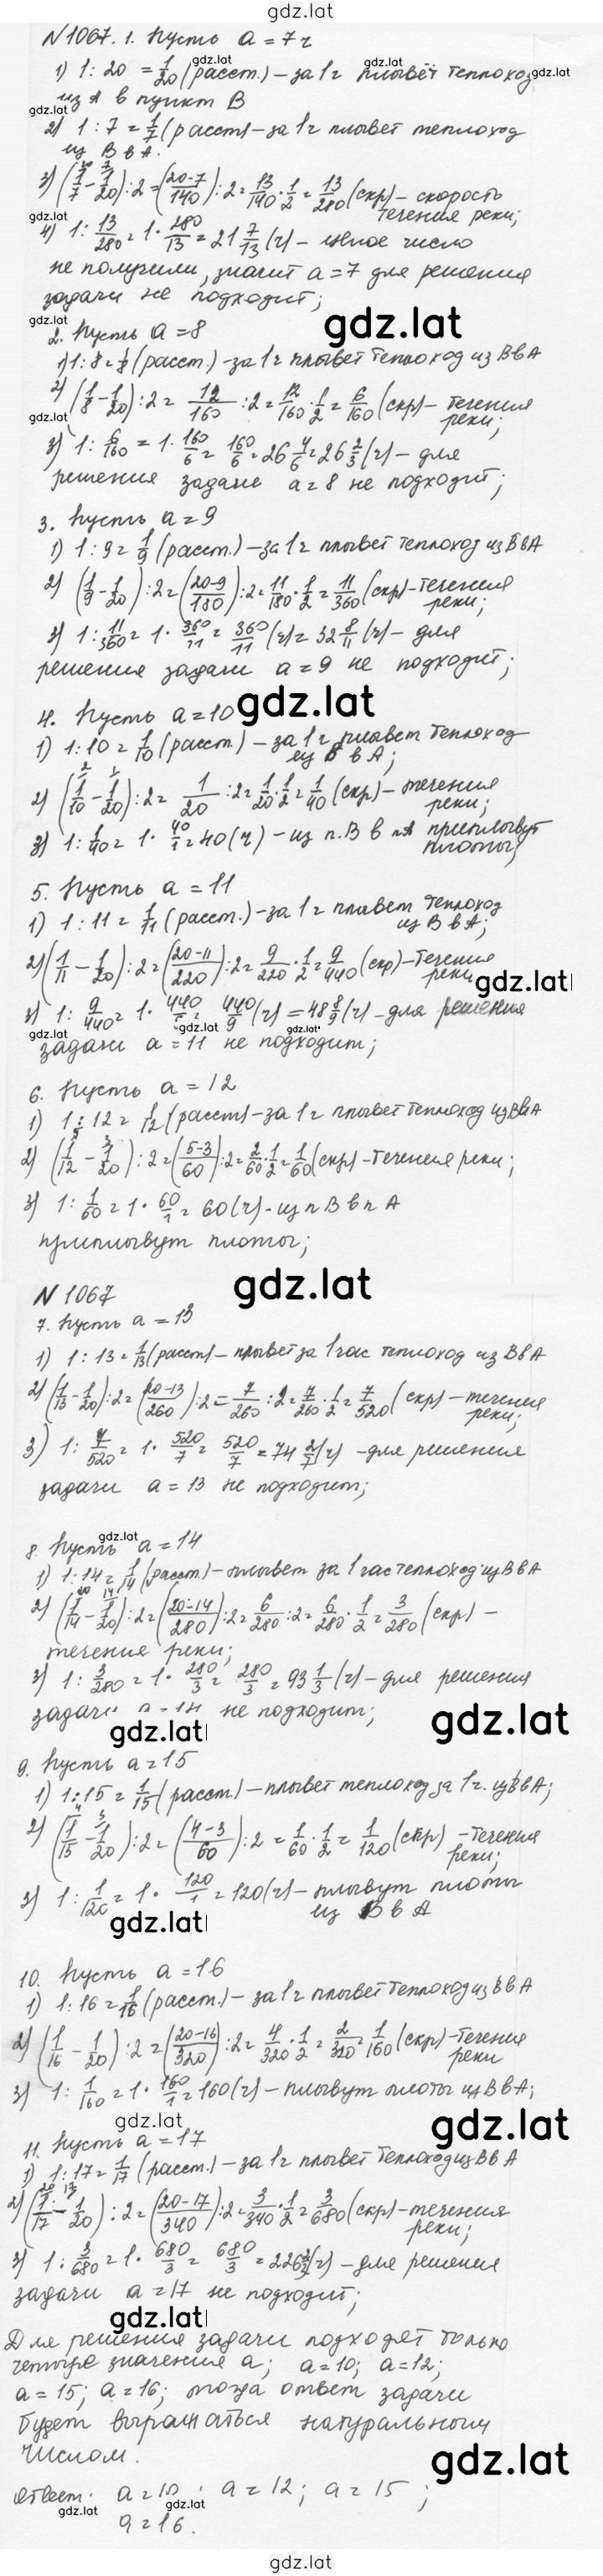 gdz.lat
N 1067. 1. Пусть a = 7 ч
gdz.lat
1) 1 : 20 = 1/20 (расст.) – за 1 ч плывёт теплоход
gdz.lat gdz.lat
из А в пункт В
2) 1 : 7 = 1/7 (расст) – за 1 ч плывет теплоход
из В в А.
gdz.lat
3) (1/7 - 1/20) : 2 = (20-7/140) : 2 = 13/140 · 1/2 = 13/280 (скр) – скорость
течения реки;
gdz.lat
4) 1 : 13/280 = 1 · 280/13 = 21 7/13 (ч) – целое число
не получили, значит a = 7 для решения
задачи не подходит;
gdz.lat
gdz.lat
2. Пусть a = 8
1) 1 : 8 = 1/8 (расст.) – за 1 ч плывет теплоход из В в А
2) (1/8 - 1/20) : 2 = 12/160 : 2 = 12/160 · 1/2 = 6/160 (скр) – течения
реки;
gdz.lat
3) 1 : 6/160 = 1 · 160/6 = 160/6 = 26 4/6 = 26 2/3 (ч) – для
решения задачи a = 8 не подходит;
3. Пусть a = 9
1) 1 : 9 = 1/9 (расст.) – за 1 ч плывет теплоход из В в А
2) (1/9 - 1/20) : 2 = (20-9/180) : 2 = 11/180 · 1/2 = 11/360 (скр) – течения
реки;
3) 1 : 11/360 = 1 · 360/11 = 360/11 (ч) = 32 8/11 (ч) – для
решения задачи a = 9 не подходит;
gdz.lat
4. Пусть a = 10
1) 1 : 10 = 1/10 (расст) – за 1 ч плывет теплоход
из В в А;
2) (1/10 - 1/20) : 2 = 1/20 : 2 = 1/20 · 1/2 = 1/40 (скр) – течения
реки;
3) 1 : 1/40 = 1 · 40/1 = 40 (ч) – из п. В в п А приплывут
плоты;
5. Пусть a = 11
1) 1 : 11 = 1/11 (расст.) – за 1 ч плывет теплоход
из В в А;
2) (1/11 - 1/20) : 2 = (20-11/220) : 2 = 9/220 · 1/2 = 9/440 (скр) – течения
реки
gdz.lat
3) 1 : 9/440 = 1 · 440/9 = 440/9 (ч) = 48 8/9 (ч) – для решения
gdz.lat gdz.lat
задачи a = 11 не подходит;
6. Пусть a = 12
1) 1 : 12 = 1/12 (расст) – за 1 ч плывет теплоход из В в А
2) (1/12 - 1/20) : 2 = (5-3/60) : 2 = 2/60 · 1/2 = 1/60 (скр) – течения реки;
3) 1 : 1/60 = 1 · 60/1 = 60 (ч) – из п В в п А
приплывут плоты;
gdz.lat
N 1067
7. Пусть a = 13
1) 1 : 13 = 1/13 (расст) – плывет за 1 час теплоход из В в А
2) (1/13 - 1/20) : 2 = (20-13/260) : 2 = 7/260 : 2 = 7/260 · 1/2 = 7/520 (скр) – течения
реки;
3) 1 : 7/520 = 1 · 520/7 = 520/7 = 74 2/7 (ч) – для решения
задачи a = 13 не подходит;
gdz.lat
8. Пусть a = 14
1) 1 : 14 = 1/14 (расст.) – плывет за 1 час теплоход из В в А
2) (1/14 - 1/20) : 2 = (20-14/280) : 2 = 6/280 : 2 = 6/280 · 1/2 = 3/280 (скр) –
течения реки;
3) 1 : 3/280 = 1 · 280/3 = 280/3 = 93 1/3 (ч) – для решения
задачи a = 14 не подходит;
gdz.lat gdz.lat
9. Пусть a = 15
1) 1 : 15 = 1/15 (расст.) – плывет теплоход за 1 ч. из В в А;
2) (1/15 - 1/20) : 2 = (4-3/60) : 2 = 1/60 · 1/2 = 1/120 (скр) – течения
реки;
3) 1 : 1/120 = 1 · 120/1 = 120 (ч) – плывут плоты
из В в А
gdz.lat
10. Пусть a = 16
1) 1 : 16 = 1/16 (расст.) – за 1 ч плывет теплоход из В в А
2) (1/16 - 1/20) : 2 = (20-16/320) : 2 = 4/320 · 1/2 = 2/320 = 1/160 (скр) – течения
реки
3) 1 : 1/160 = 1 · 160/1 = 160 (ч) – плывут плоты из В в А;
gdz.lat gdz.lat
11. Пусть a = 17
1) 1 : 17 = 1/17 (расст.) – за 1 ч плывет теплоход из В в А
2) (1/17 - 1/20) : 2 = (20-17/340) : 2 = 3/340 · 1/2 = 3/680 (скр) – течения
реки;
3) 1 : 3/680 = 1 · 680/3 = 680/3 = 226 2/3 (ч) – для решения
задачи a = 17 не подходит;
gdz.lat gdz.lat
Для решения задачи подходят только
четыре значения a; a = 10; a = 12;
a = 15; a = 16; тогда ответ задачи
будет выражаться натуральным
числом.
gdz.lat
Ответ: a = 10; a = 12; a = 15;
gdz.lat gdz.lat
a = 16.
gdz.lat